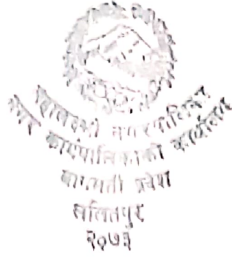 महालक्ष्मी नगरपालिका
नगर कार्यपालिकाको कार्यालय
बागमती प्रदेश
ललितपुर
२०७३